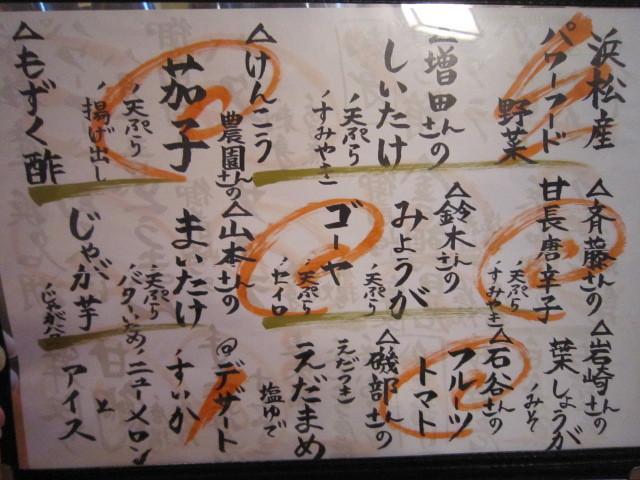 浜松産
パワーフード
野菜
△増田さんの
しいたけ
天ぷら
すみやき
△けんこう
農園さんの
茄子
天ぷら
揚げ出し
△もずく酢
△斉藤さんの
甘長唐辛子
天ぷら
すみやき
△鈴木さんの
みょうが
天ぷら
ゴーヤ
天ぷら
セイロ
△山本さんの
まいたけ
天ぷら
バターいため
じゃが芋
じゃがバタ
△岩崎さんの
葉しょうが
みそ
△石谷さんの
フルーツ
トマト
△磯部さんの
えだつき
えだまめ
塩ゆで
@デザート
すいか
ニューメロン
と
アイス